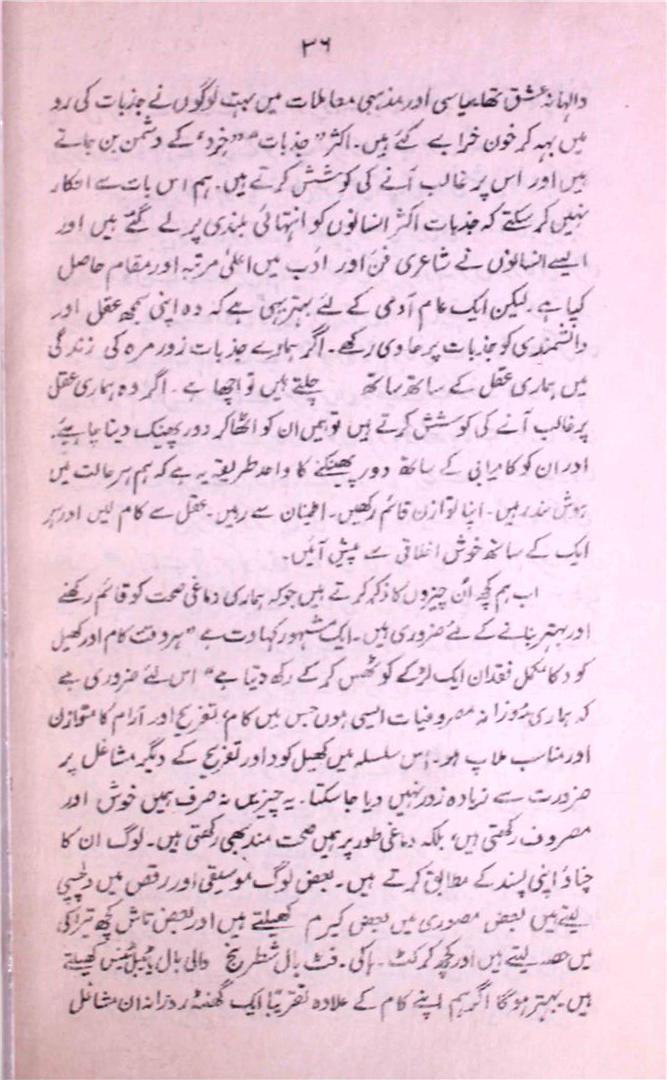 ۳۶
والہانہ عشق تھا۔ سیاسی اور مذہبی معاملات میں بہت لوگوں نے جذبات کی رو
میں بہہ کر خون خرابے کئے ہیں۔ اکثر "جذبات" "خرد" کے دشمن بن جاتے
ہیں اور اس پر غالب آنے کی کوشش کرتے ہیں۔ ہم اس بات سے انکار
نہیں کر سکتے کہ جذبات اکثر انسانوں کو انتہائی بلندی پر لے گئے ہیں اور
ایسے انسانوں نے شاعری فن اور ادب میں اعلیٰ مرتبہ اور مقام حاصل
کیا ہے۔ لیکن ایک عام آدمی کے لئے بہتر یہی ہے کہ وہ اپنی سمجھ عقل اور
دانشمندی کو جذبات پر حاوی رکھے۔ اگر ہمارے جذبات روز مرہ کی زندگی
میں ہماری عقل کے ساتھ ساتھ چلتے ہیں تو اچھا ہے۔ اگر وہ ہماری عقل
پر غالب آنے کی کوشش کرتے ہیں تو ہمیں ان کو اٹھا کر دور پھینک دینا چاہئے۔
اور ان کو کامیابی کے ساتھ دور پھینکنے کا واحد طریقہ یہ ہے کہ ہم ہر حالت میں
ہوش مند رہیں۔ اپنا توازن قائم رکھیں۔ اطمینان سے رہیں۔ عقل سے کام لیں اور ہر
ایک کے ساتھ خوش اخلاقی سے پیش آئیں۔
اب ہم کچھ اُن چیزوں کا ذکر کرتے ہیں جو کہ ہماری دماغی صحت کو قائم رکھنے
اور بہتر بنانے کے لئے ضروری ہیں۔ ایک مشہور کہاوت ہے "ہر وقت کام اور کھیل
کود کا مکمل فقدان ایک لڑکے کو ٹھس کر کے رکھ دیتا ہے" اس لئے ضروری ہے
کہ ہماری روزانہ مصروفیات ایسی ہوں جس میں کام، تفریح اور آرام کا متوازن
اور مناسب ملاپ ہو۔ اس سلسلہ میں کھیل کود اور تفریح کے دیگر مشاغل پر
ضرورت سے زیادہ زور نہیں دیا جا سکتا۔ یہ چیزیں نہ صرف ہمیں خوش اور
مصروف رکھتی ہیں، بلکہ دماغی طور پر ہمیں صحت مند بھی رکھتی ہیں۔ لوگ ان کا
چناؤ اپنی پسند کے مطابق کرتے ہیں۔ بعض لوگ موسیقی اور رقص میں دلچسپی
لیتے ہیں بعض مصوری میں بعض کیرم کھیلتے ہیں اور بعض تاش کچھ تیراکی
میں حصہ لیتے ہیں اور کچھ کرکٹ۔ ہاکی۔ فٹ بال شطرنج والی بال یا ٹیبل ٹینس کھیلتے
ہیں۔ بہتر ہوگا اگر ہم اپنے کام کے علاوہ تقریباً ایک گھنٹہ روزانہ ان مشاغل